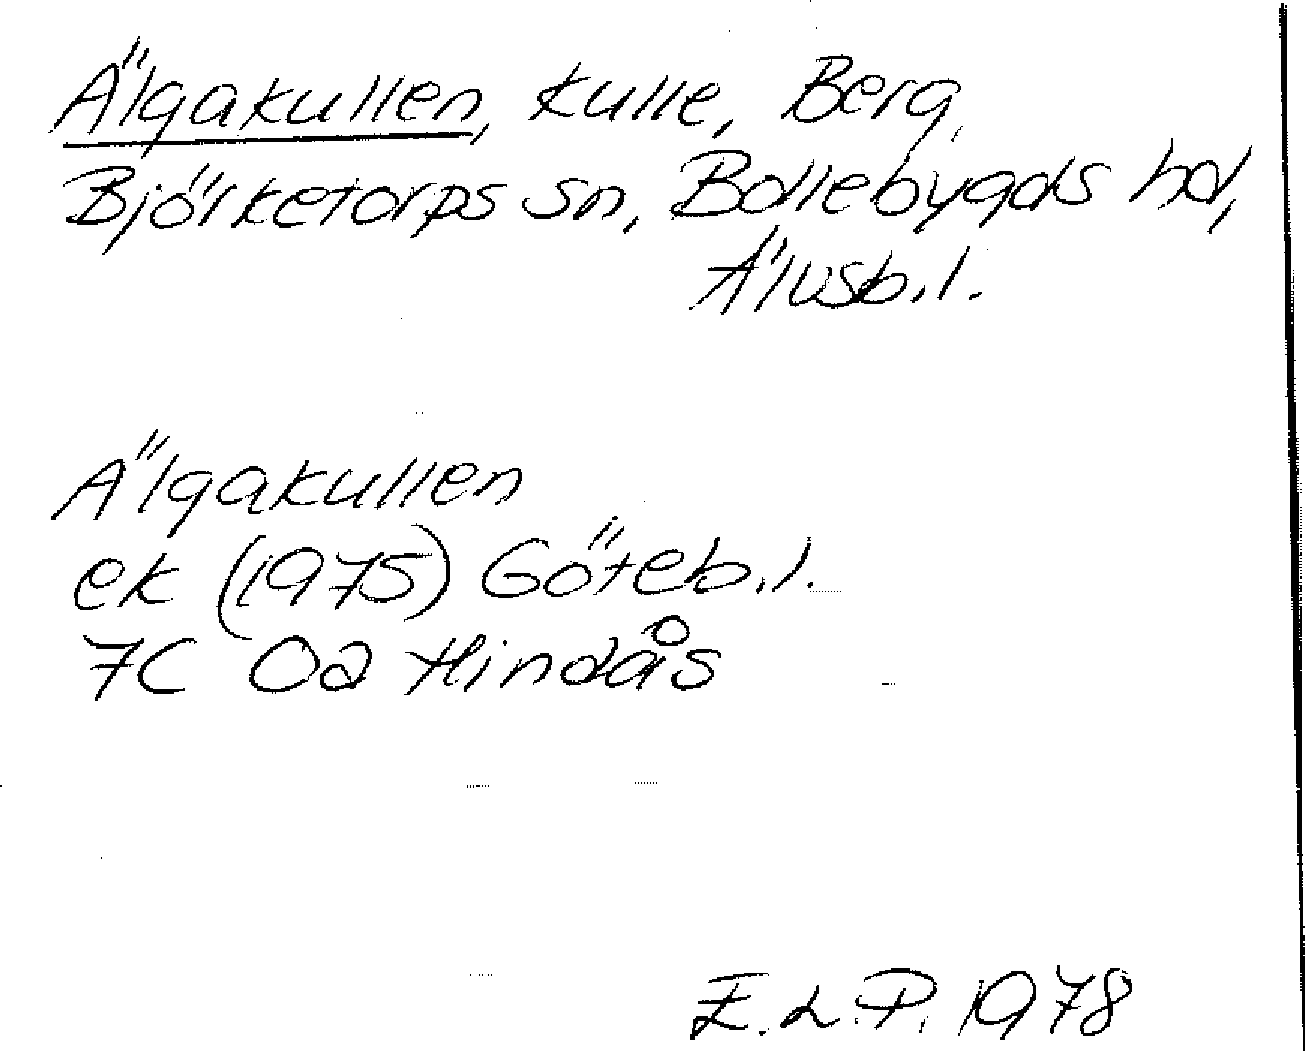 Älgakullen, kulle, Berg,
Björketorps sn, Bollebygds hd,
Älvsb.l.
Älgakullen
ek (1975) Göteb.l.
7C 0a Hindås
E.L.P. 1978